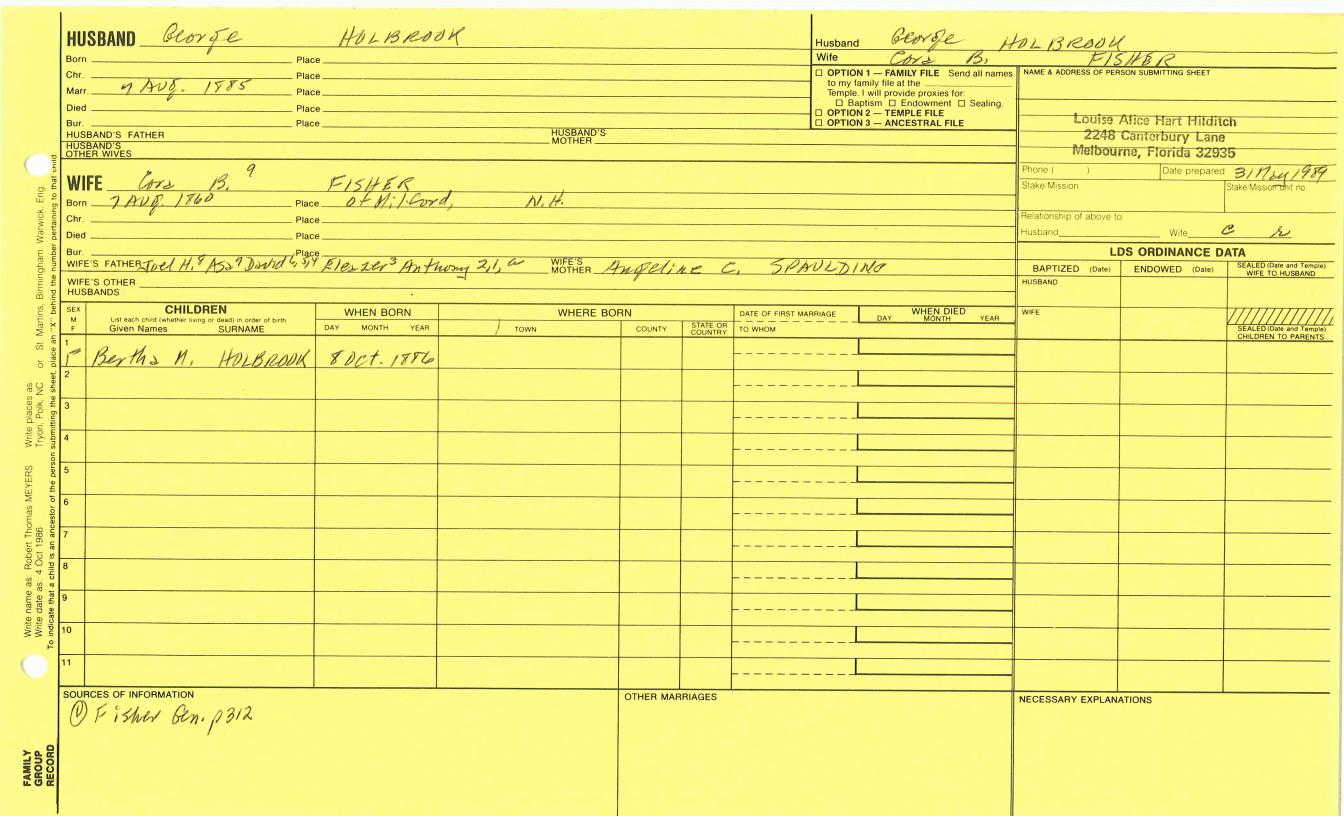 HUSBAND George HOLBROOK
Born Place
Chr. Place
Marr. 7 Aug. 1885 Place
Died Place
Bur. Place
HUSBAND'S FATHER HUSBAND'S MOTHER
HUSBAND'S OTHER WIVES
Husband George HOLBROOK
Wife Cora B. FISHER
☐ OPTION 1 — FAMILY FILE Send all names
to my family file at the
Temple. I will provide proxies for:
☐ Baptism ☐ Endowment ☐ Sealing.
☐ OPTION 2 — TEMPLE FILE
☐ OPTION 3 — ANCESTRAL FILE
NAME & ADDRESS OF PERSON SUBMITTING SHEET
Louise Alice Hart Hilditch
2248 Canterbury Lane
Melbourne, Florida 32935
Phone ( ) Date prepared 31 May 1989
Stake Mission Stake Mission unit no.
Relationship of above to
Husband Wife C R
WIFE Cora B. 9 FISHER
Born 7 Aug. 1860 Place of Milford, N.H.
Chr. Place
Died Place
Bur. Place
WIFE'S FATHER Joel H.8 Asa7 David6,5,4 Eleazer3 Anthony 2,1,a WIFE'S MOTHER Angeline C. SPAULDING
WIFE'S OTHER HUSBANDS
LDS ORDINANCE DATA
BAPTIZED (Date) ENDOWED (Date) SEALED (Date and Temple) WIFE TO HUSBAND
HUSBAND
WIFE
SEALED (Date and Temple) CHILDREN TO PARENTS
SEX M F
CHILDREN
List each child (whether living or dead) in order of birth
Given Names SURNAME
WHEN BORN
DAY MONTH YEAR
WHERE BORN
TOWN COUNTY STATE OR COUNTRY
DATE OF FIRST MARRIAGE
TO WHOM
WHEN DIED
DAY MONTH YEAR
1 F Bertha M. HOLBROOK 8 Oct. 1886
2
3
4
5
6
7
8
9
10
11
SOURCES OF INFORMATION
① Fisher Gen. p312
OTHER MARRIAGES
NECESSARY EXPLANATIONS
Write name as: Robert Thomas MEYERS Write places as Tryon, Polk, NC or St. Martins, Birmingham, Warwick, Eng.
Write date as: 4 Oct 1986
To indicate that a child is an ancestor of the person submitting the sheet, place an "X" behind the number pertaining to that child.
FAMILY
GROUP
RECORD